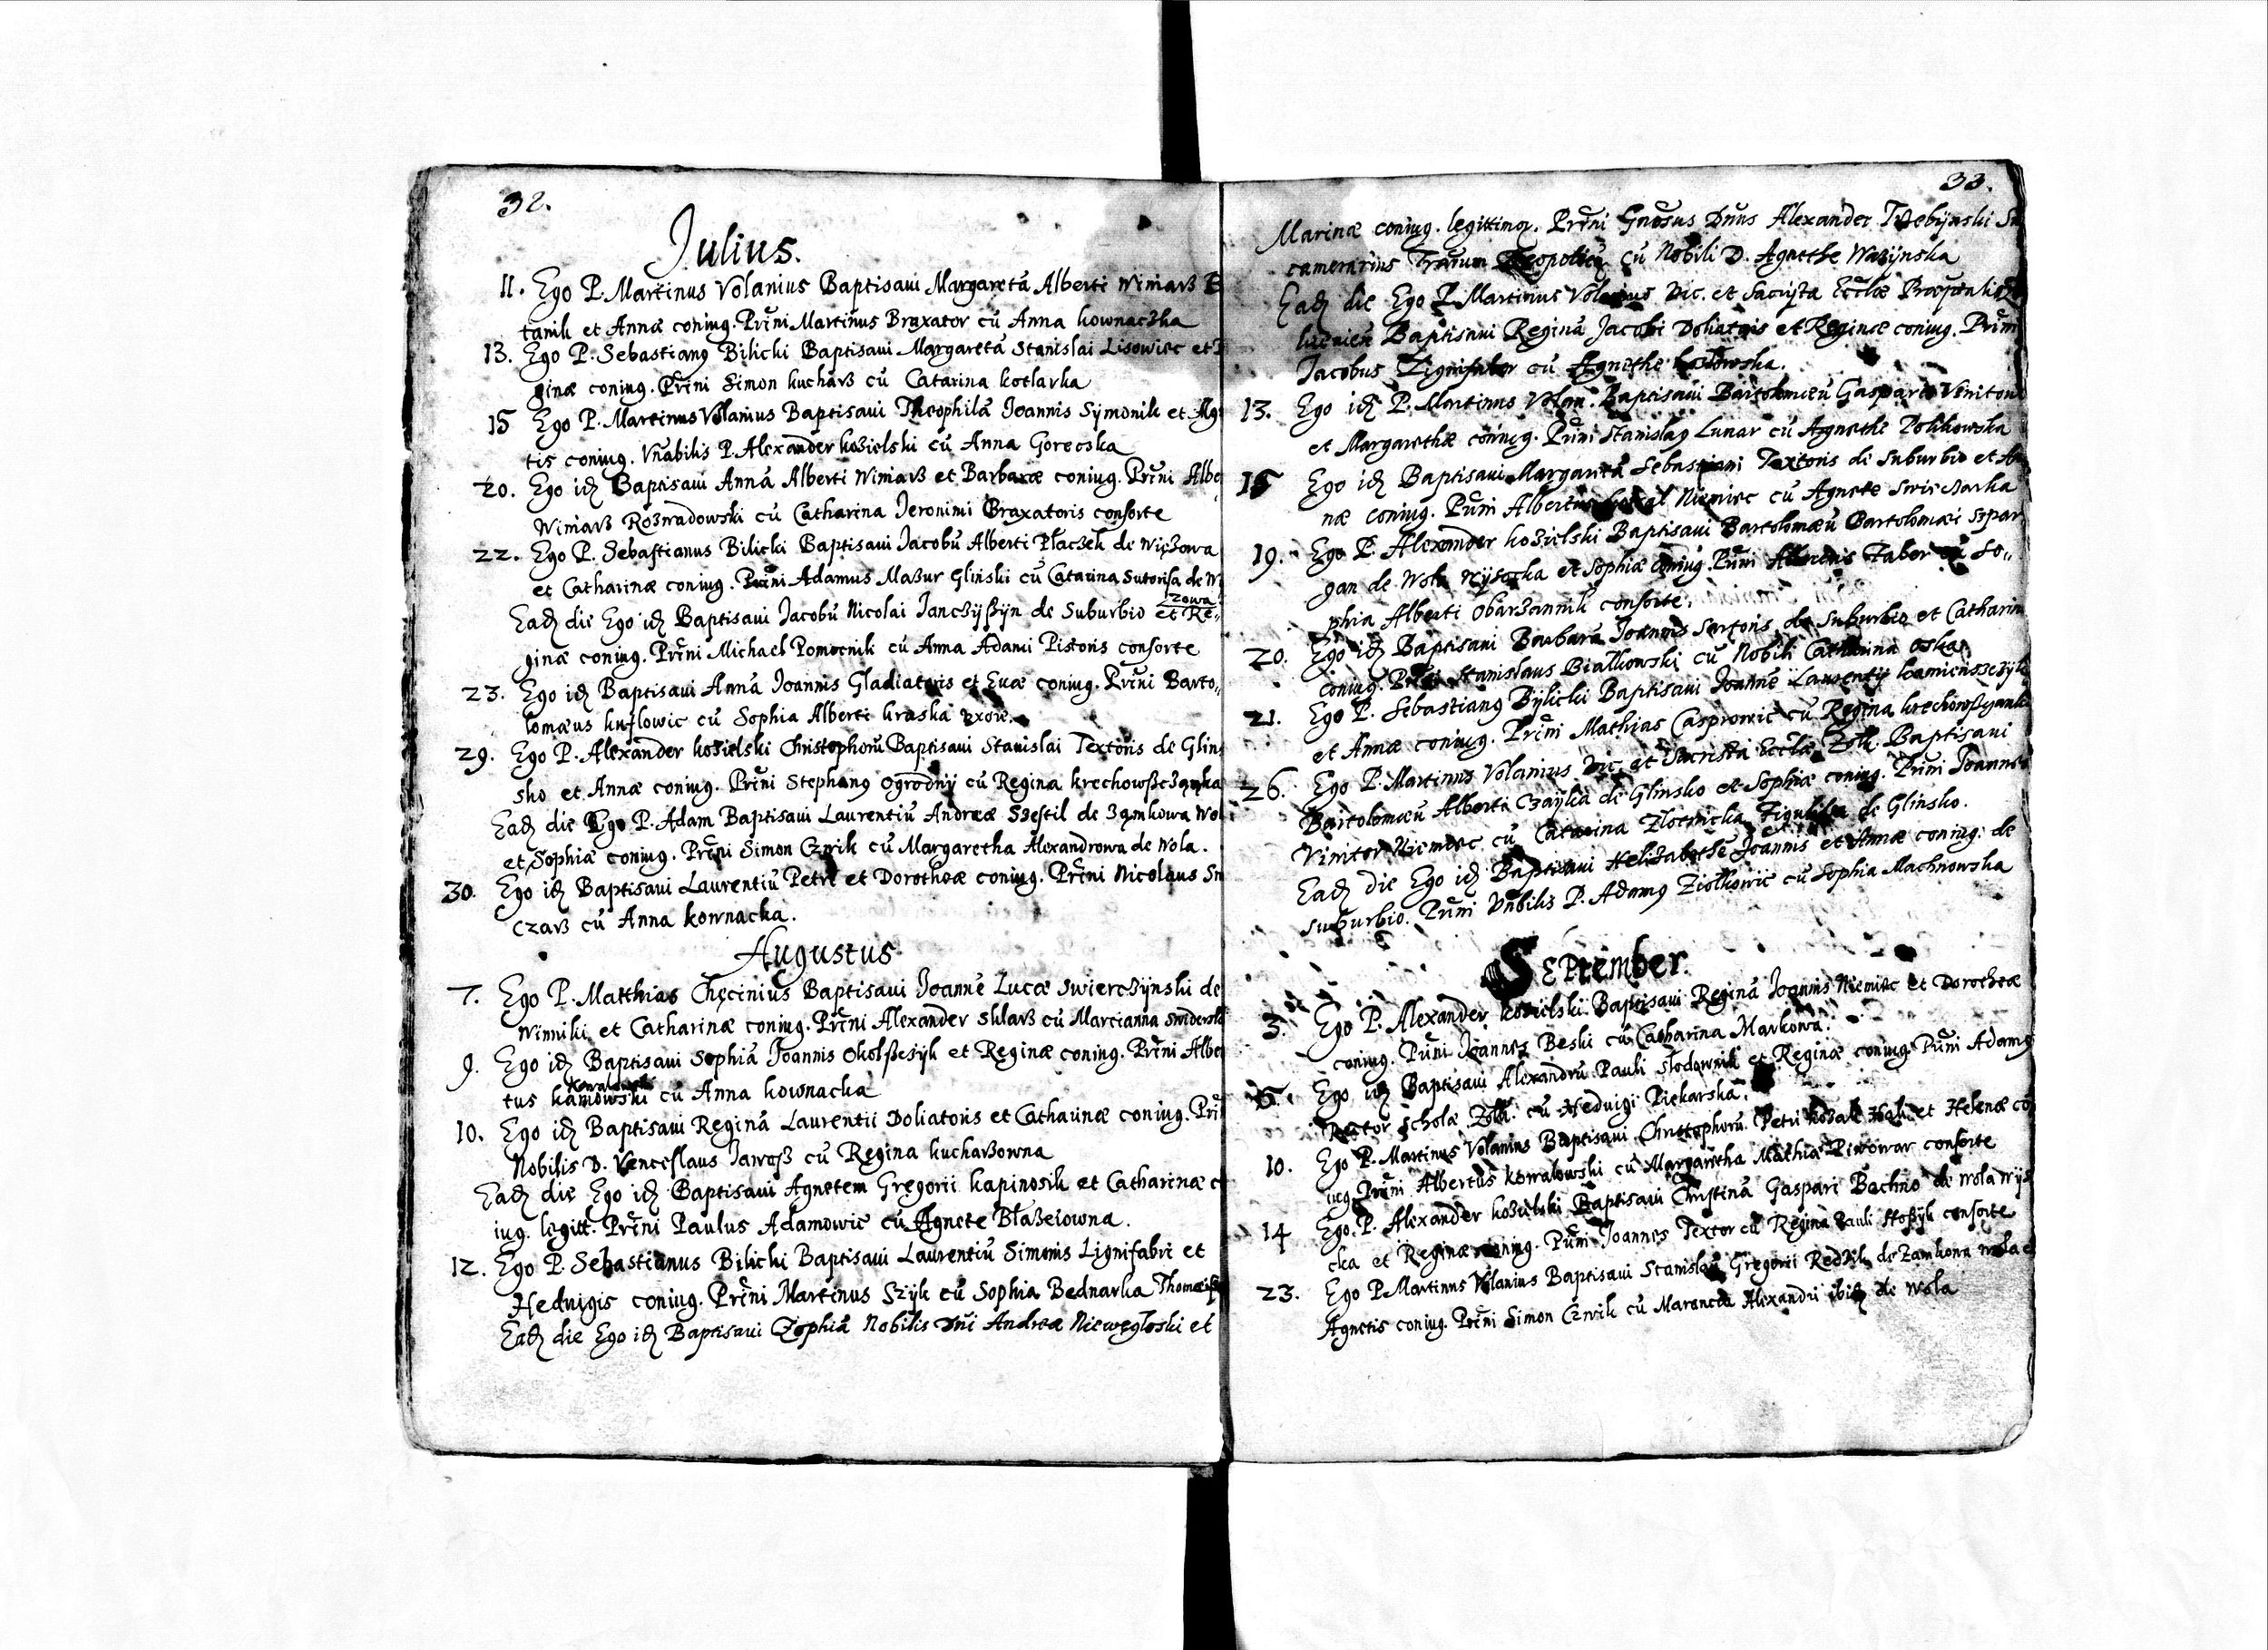 32.
Julius.
11. Ego P. Martinus Volanius Baptisaui Margaretā Alberti Winiarß
tanik et Annæ coniug. Prñi Martinus Braxator cū Anna kownaczka
13. Ego P. Sebastiang Bilicki Baptisaui Margaretā Stanislai Lisowiec et
ginæ coniug. Prñi Simon kucharß cū Catarina kotlarka
15 Ego P. Martinus Volanius Baptisaui Theophilā Joannis Symonik et Agn
tis coniug. Vñabilis P. Alexander koзielski cū Anna Gorecska
20. Ego idē Baptisaui Annā Alberti Winiarß et Barbaræ coniug. Prñi Albe
Winiarß Roзwadowski cū Catharina Jeronimi Braxatoris consorte
22. Ego P. Sebastianus Bilicki Baptisaui Jacobū Alberti Płaczek de Więзowa
et Catharinæ coniug. Prñi Adamus Maзur Glinski cū Catarina Sutorisa de W
zowa
Eadē die Ego idē Baptisaui Jacobū Nicolai Janczÿßÿn de Suburbio et Re„
ginæ coniug. Prñi Michael Pomocnik cū Anna Adami Pistoris consorte
23. Ego idē Baptisaui Annā Joannis Gladiatoris et Euæ coniug. Prñi Barto„
lomæus kuslowic cū Sophia Alberti kraska uxore.
29. Ego P. Alexander koзielski Christophorū Baptisaui Stanislai Textoris de Glin
sko et Annæ coniug. Prñi Stephang Ogrodnÿ cū Regina
Eadē die Ego P. Adam Baptisaui Laurentiū Andreæ Szestil de Зamkowa Wol
et Sophiæ coniug. Prñi Simon Czwik cū Margaretha Alexandrowa de Wola.
30. Ego idē Baptisaui Laurentiū Petri et Dorotheæ coniug. Prñi Nicolaus Sn
czarß cū Anna kownacka.
Augustus
7. Ego P. Matthias Chęcinius Baptisaui Joannē Lucæ Swierczÿnski de
Winniki et Catharinæ coniug. Prñi Alexander Sklarß cū Marcianna
9. Ego idē Baptisaui Sophiā Joannis Okolßeзÿk et Reginæ coniug. Prñi Alber
tus cū Anna kownacka
10. Ego idē Baptisaui Reginā Laurentii Doliatoris et Catharinæ coniug. Prñ
Nobilis D. Venceslaus Jaroß cū Regina kucharßowna
Eadē die Ego idē Baptisaui Agnetem Gregorii kapinosik et Catharinæ c
iug. legitt. Prñi Paulus Adamowic cū Agnete Błaзeiowna.
12. Ego P. Sebastianus Bilicki Baptisaui Laurentiū Simonis Lignifabri et
Hedvigis coniug. Prñi Martinus Szÿk cū Sophia Bednarka
Eadē die Ego idē Baptisaui Zophiā Nobilis Dñi Andreæ Niewęgłoski et
33.
Marinæ coniug. legittimor. Prñi Gnōsus Dnus Alexander Trzebÿnski
camerarius cū Nobili D. Agnethe Waзÿnska
Eadē die Ego P. Martinus Volanius Vic. et Sacrista Ecclæ
Baptisaui Reginā Jacobi Doliatoris et Reginæ coniug. Prñi
Jacobus Lignifaber cū Agnethe
13. Ego idē P. Martinus Volan. Baptisaui Bartolomæū Gaspari Vinitor
et Margarethæ coniug. Prñi Stanislag Lunar cū Agnethe
15 Ego idē Baptisaui Margaretā Sebastiani Textoris de Suburbio et
næ coniug. Prñi Albertus Niemiec cū Agnete
19. Ego P. Alexander koзielski Baptisaui Bartolomæū Bartolomæi Szpar
gan de Wola Wÿsocka et Sophiæ coniug. Prñi Albertus Faber cū So„
phia Alberti Obarзannik consorte.
20. Ego idē Baptisaui Barbarā Joannis Sartoris de Suburbio et Catharin
coniug. Prñi Stanislaus Białkowski cū Nobili Catharina
21. Ego P. Sebastiang Bÿlicki Baptisaui Joannē Laurentÿ
et Annæ coniug. Prñi Mathias Casprowic cū Regina
26. Ego P. Martinus Volanius Vic. et Sacrista Ecclæ Zolk. Baptisaui
Bartolomæū Alberti Czaÿka de Glinsko et Sophiæ coniug. Prñi Joannes
Vinitor Niemiec cū Catarina Zlotnicka Figulisa de Glinsko.
Eadē die Ego idē Baptisaui Helizabethē Joannis et Annæ coniug. de
suburbio. Prñi Vnbilis P. Adamg Ziołkowic cū Sophia Machnowska
September.
3. Ego P. Alexander koзielski Baptisaui Reginā Joannis Niemiec et Dorotheæ
coniug. Prñi Joannes Beski cū Catharina Markowa.
Ego idē Baptisaui Alexandrū Pauli Słodownik et Reginæ coniug. Prñi Adamg
Rector Scholæ Zolk. cū Heduigi Piekarska.
10. Ego P. Martinus Volanius Baptisaui Christophorū Petri et Helenæ co
iug. Prñi Albertus kowalowski cū Margaretha Mathiæ Piwowar consorte
14 Ego P. Alexander koзielski Baptisaui Christinā Gaspari Bachno de Wola Wÿs
cka et Reginæ coniug. Prñi Joannes Textor cū Regina Pauli consorte
23. Ego P. Martinus Volanius Baptisaui Stanislaū Gregorii de Zamkowa Wola et
Agnetis coniug. Prñi Simon Czwik cū Alexandri ibidē de Wola